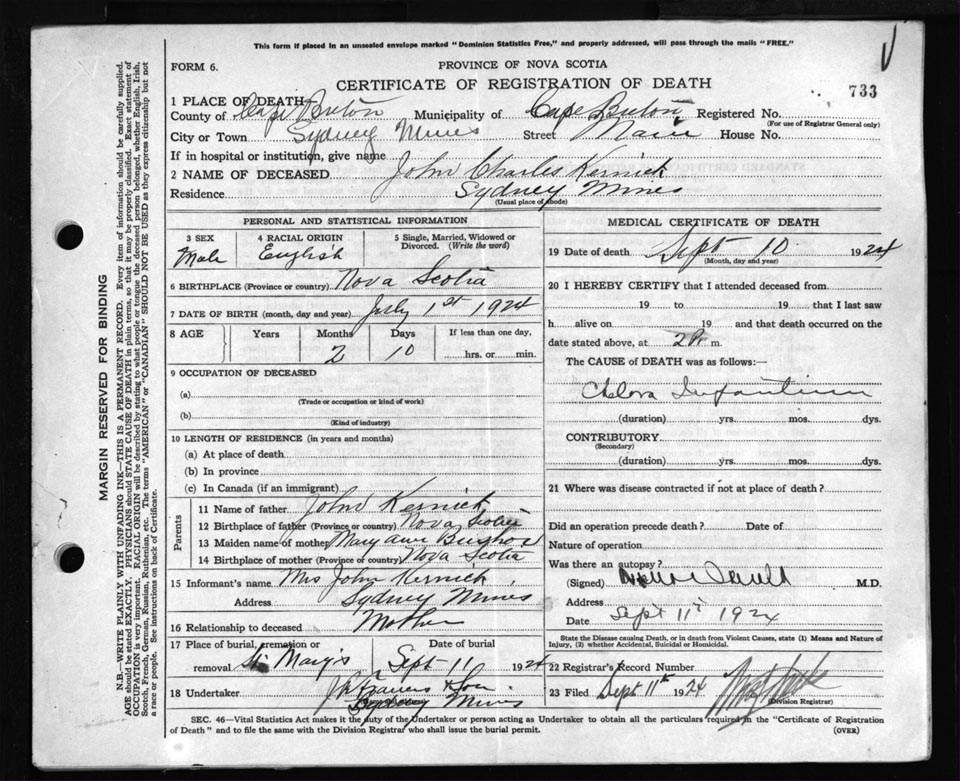 This form if placed in an unsealed envelope marked "Dominion Statistics Free," and properly addressed, will pass through the mails "FREE."
FORM 6.
PROVINCE OF NOVA SCOTIA
CERTIFICATE OF REGISTRATION OF DEATH
733
1 PLACE OF DEATH
County of Cape Breton Municipality of Cape Breton Registered No.
(For use of Registrar General only)
City or Town Sydney Mines Street Main House No.
If in hospital or institution, give name
2 NAME OF DECEASED John Charles Kernick
Residence Sydney Mines
(Usual place of abode)
PERSONAL AND STATISTICAL INFORMATION
3 SEX Male
4 RACIAL ORIGIN English
5 Single, Married, Widowed or Divorced. (Write the word)
6 BIRTHPLACE (Province or country) Nova Scotia
7 DATE OF BIRTH (month, day and year) July 1st 1924
8 AGE Years Months Days If less than one day,
2 10 hrs. or min.
9 OCCUPATION OF DECEASED
(a)
(Trade or occupation or kind of work)
(b)
(Kind of industry)
10 LENGTH OF RESIDENCE (in years and months)
(a) At place of death
(b) In province
(c) In Canada (if an immigrant)
Parents
11 Name of father John Kernick
12 Birthplace of father (Province or country) Nova Scotia
13 Maiden name of mother Mary Ann
14 Birthplace of mother (Province or country) Nova Scotia
15 Informant's name Mrs John Kernick
Address Sydney Mines
16 Relationship to deceased Mother
17 Place of burial, cremation or removal St Mary's Date of burial Sept 11 1924
18 Undertaker Francis & Son
Sydney Mines
MEDICAL CERTIFICATE OF DEATH
19 Date of death Sept 10 1924
(Month, day and year)
20 I HEREBY CERTIFY that I attended deceased from
19 to 19 that I last saw
h alive on 19 and that death occurred on
date stated above, at 2 P m.
The CAUSE of DEATH was as follows:—
Cholera Infantum
(duration) yrs. mos. dys.
CONTRIBUTORY
(Secondary)
(duration) yrs. mos. dys.
21 Where was disease contracted if not at place of death?
Did an operation precede death? Date of
Nature of operation
Was there an autopsy?
(Signed) M.D.
Address
Date Sept 11th 1924
State the Disease causing Death, or in death from Violent Causes, state (1) Means and Nature of Injury, (2) whether Accidental, Suicidal or Homicidal.
22 Registrar's Record Number
23 Filed Sept 11th 1924
(Division Registrar)
SEC. 46—Vital Statistics Act makes it the duty of the Undertaker or person acting as Undertaker to obtain all the particulars required in the "Certificate of Registration
of Death" and to file the same with the Division Registrar who shall issue the burial permit.
(OVER)
MARGIN RESERVED FOR BINDING
N.B.—WRITE PLAINLY WITH UNFADING INK—THIS IS A PERMANENT RECORD. Every item of information should be carefully supplied.
AGE should be stated EXACTLY. PHYSICIANS should STATE CAUSE OF DEATH in plain terms, so that it may be properly classified. Exact statement of
OCCUPATION is very important. RACIAL ORIGIN will be described by stating to what people or tongue the deceased person belonged, whether English, Irish,
Scotch, French, German, Russian, Ruthenian, etc. The terms "AMERICAN" or "CANADIAN" SHOULD NOT BE USED as they express citizenship but not
a race or people. See instructions on back of Certificate.